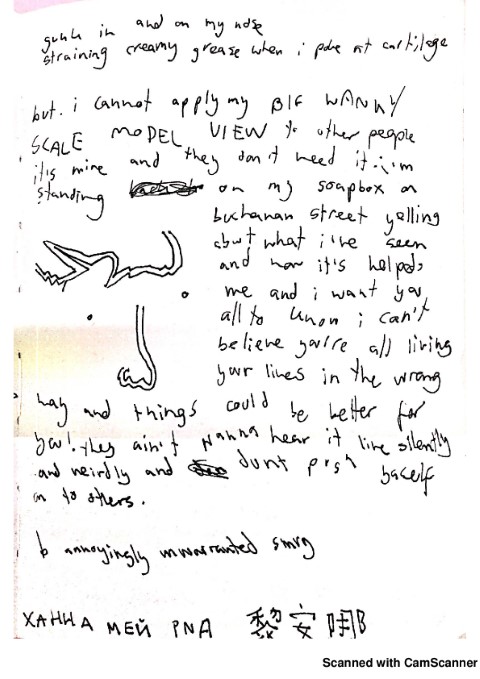 gunk in and on my nose
straining creamy grease when i poke at cartilage
but i cannot apply my BIG WANKY
SCALE MODEL VIEW to other people
it's mine and they don't need it. i'm
standing on my soapbox on
buchanan street yelling
about what i've seen
and how it's helped
me and i want you
all to know i can't
believe you're all living
your lives in the wrong
way and things could be better for
you! they ain't wanna hear it live silently
and weirdly and dont push yaself
on to others.
b annoyingly unwarranted smug
ХАННА МЕЙ 黎安娜
Scanned with CamScanner